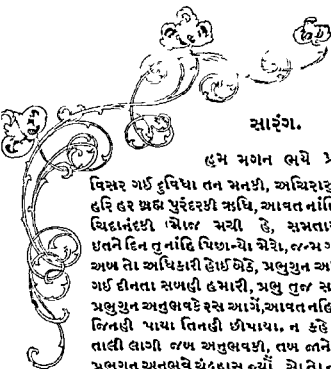 સારંગ.
હમ મગન ભયે
વિસર ગઈ દુવિધા તન મનકી, અચિરા
હરિ હર બ્રહ્મ પુરંદરકી ઋધિ, આવત નાંહિ
ચિદાનંદકી મૌજ મચી હે, સમતા
ઇતને દિન તૂ નાંહિ પિછાન્યો મેરો, જન્મ
અબ તો અધિકારી હોઈ બેઠે, પ્રભુગુન
ગઈ દીનતા સબહી હમારી, પ્રભુ તુજ
પ્રભુગુન અનુભવકે રસ આગેં, આવત નહિ
જિનહી પાયા તિનહી છીપાયા, ન કહે
તાલી લાગી જબ અનુભવકી, તબ જાને
પ્રભુગુન અનુભવ ચંદ્રહાસ જ્યોં